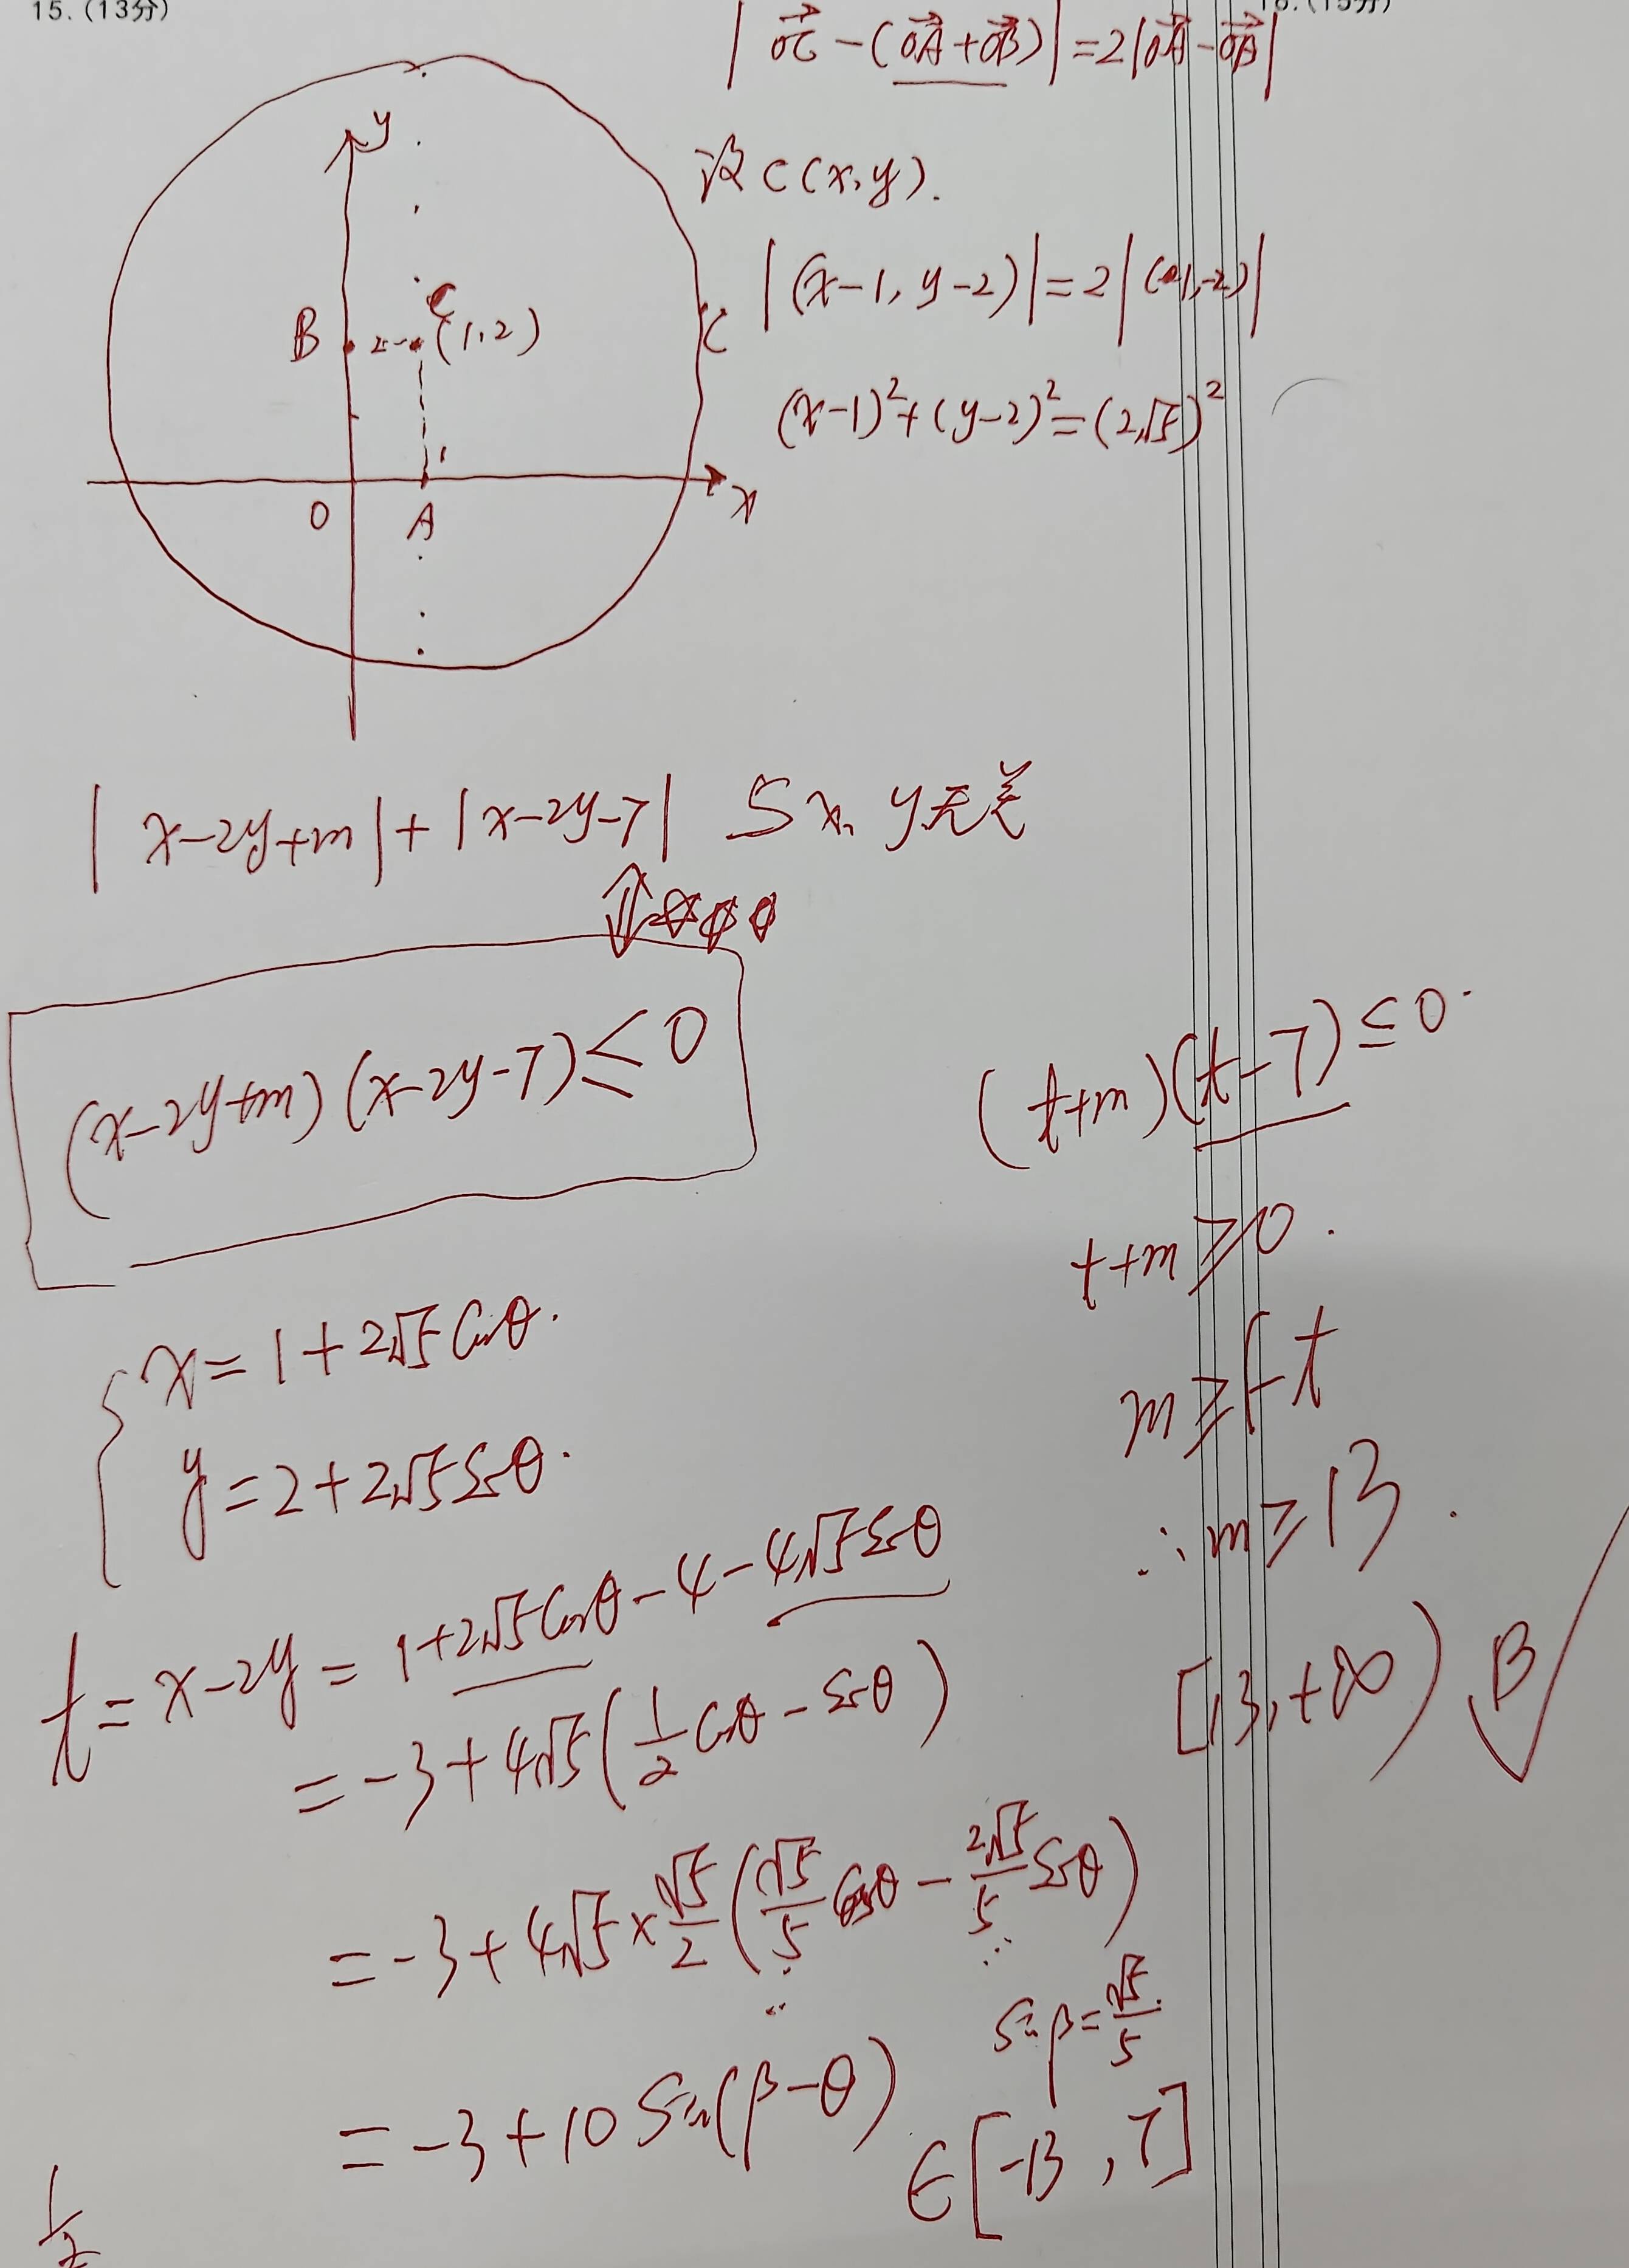 15. (13分)
16. (15分)
|OC→ - (OA→ + OB→)| = 2|OA→ - OB→|
设C(x, y).
|(x-1, y-2)| = 2|(1, -2)|
(x-1)² + (y-2)² = (2√5)²
y
C
B 2 (1, 2) C
1
O A x
|x-2y+m| + |x-2y-7| 与x, y无关
⇕
(x-2y+m)(x-2y-7) ≤ 0
(t+m)(t-7) ≤ 0.
t+m ≥ 0.
m ≥ -t
∴ m ≥ 13.
[13, +∞) B √
{ x = 1 + 2√5 cosθ.
y = 2 + 2√5 sinθ.
t = x-2y = 1 + 2√5 cosθ - 4 - 4√5 sinθ
= -3 + 4√5 (1/2 cosθ - sinθ)
= -3 + 4√5 × √5/2 (√5/5 cosθ - 2√5/5 sinθ)
sinβ = √5/5.
= -3 + 10 sin(β-θ) ∈ [-13, 7]
1/2